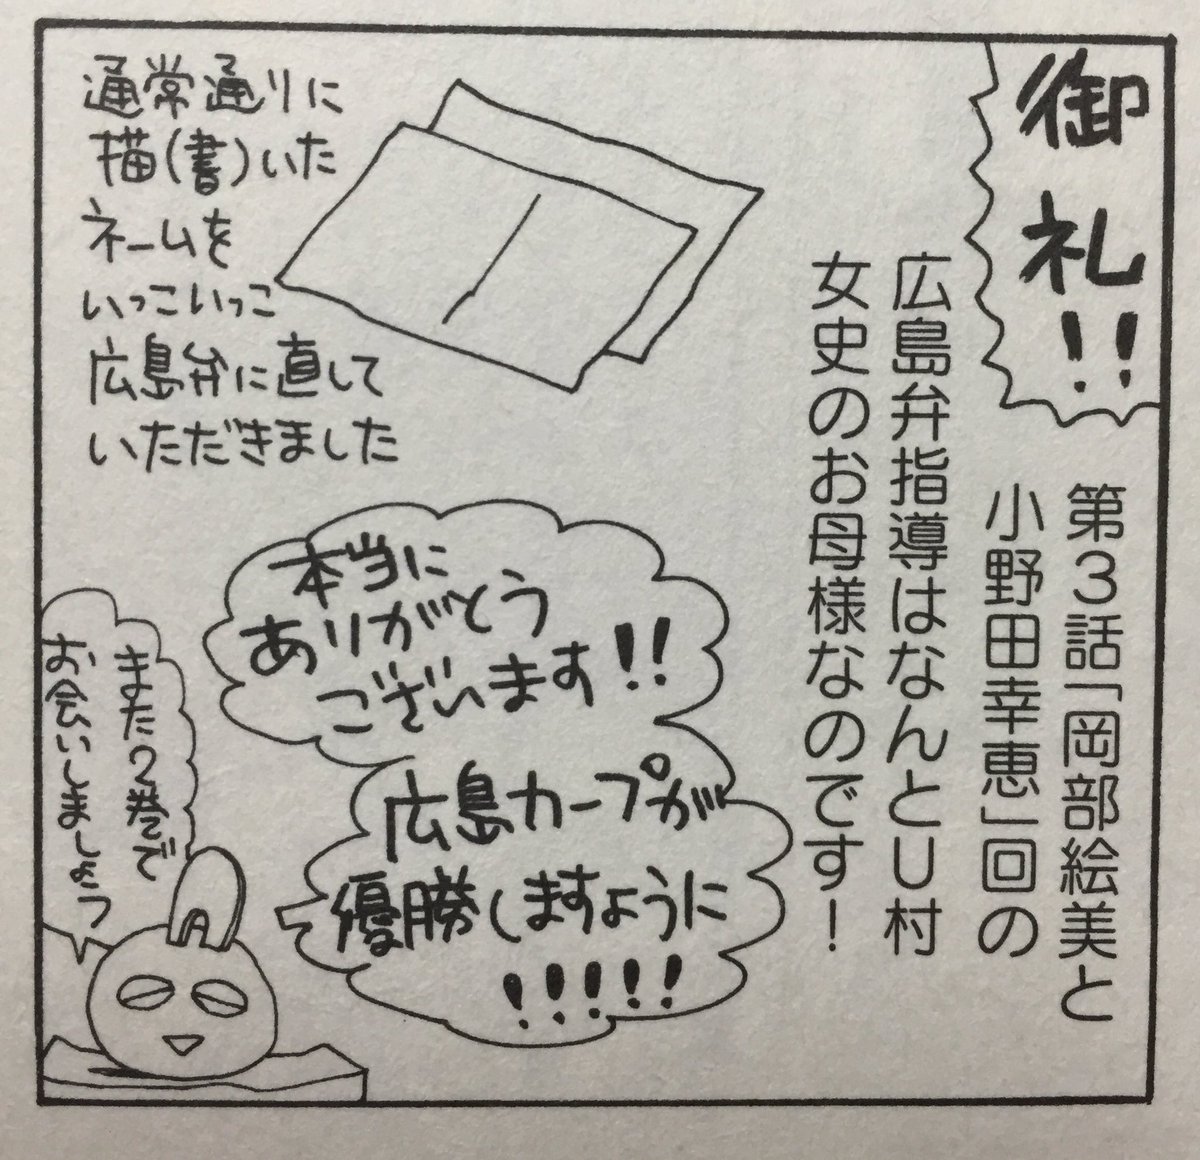 御礼!!
第3話「岡部絵美と
小野田幸恵」回の
広島弁指導はなんとU村
女史のお母様なのです!
通常通りに
描(書)いた
ネームを
いっこいっこ
広島弁に直して
いただきました
本当に
ありがとう
ございます!!
広島カープが
優勝しますように
!!!!!
また2巻で
お会いしましょう